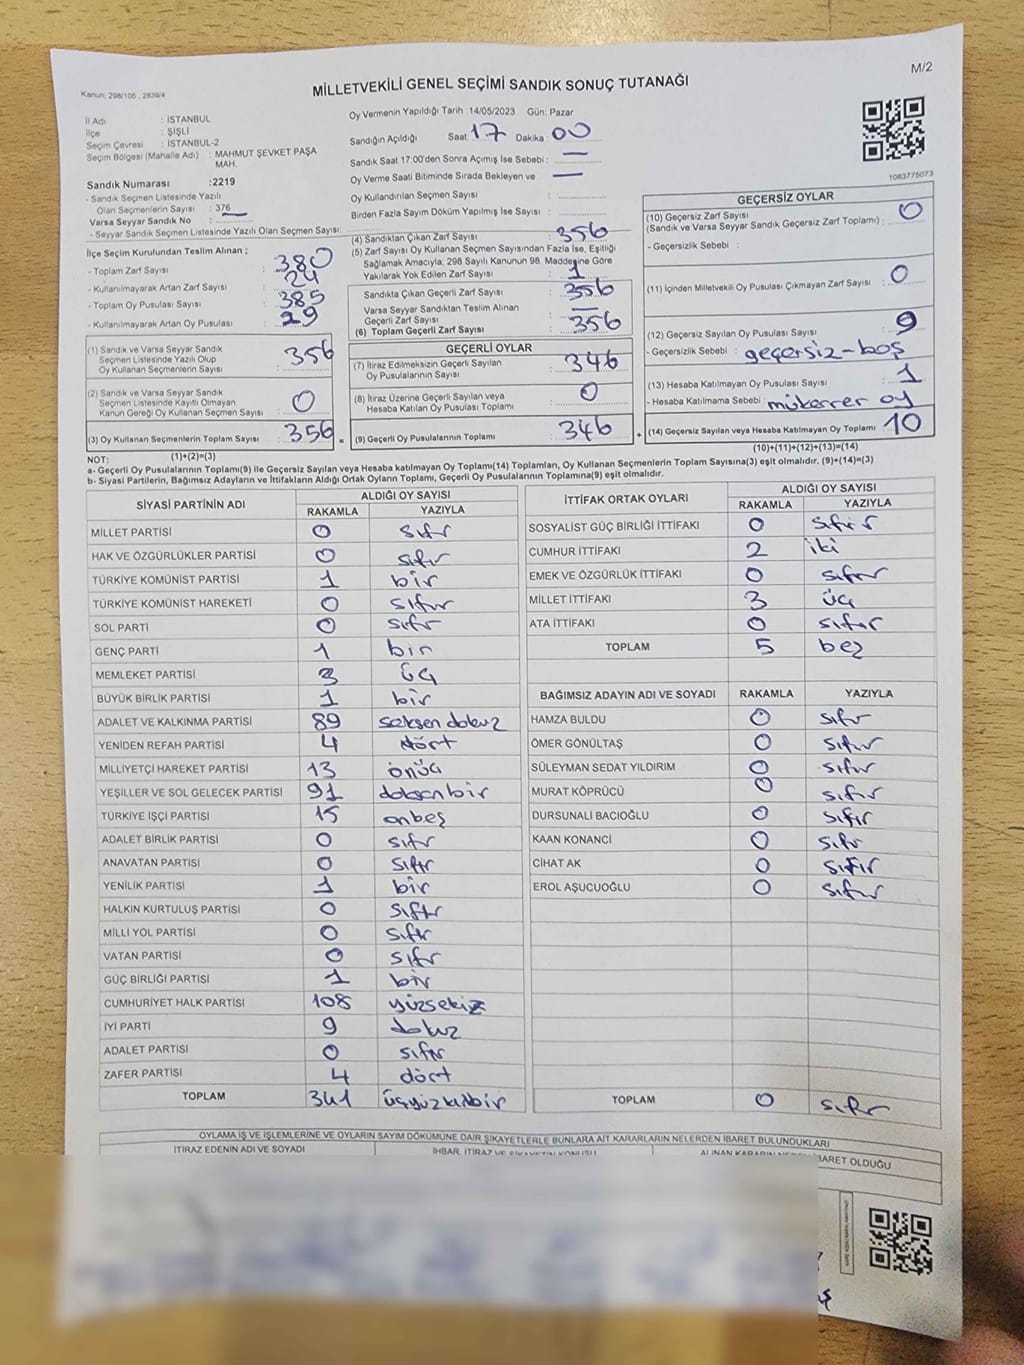 M/2
Kanun; 298/105 , 2839/4
MİLLETVEKİLİ GENEL SEÇİMİ SANDIK SONUÇ TUTANAĞI
İl Adı : İSTANBUL
İlçe : ŞİŞLİ
Seçim Çevresi : İSTANBUL-2
Seçim Bölgesi (Mahalle Adı) : MAHMUT ŞEVKET PAŞA
MAH.
Sandık Numarası :2219
- Sandık Seçmen Listesinde Yazılı
Olan Seçmenlerin Sayısı : 376
Varsa Seyyar Sandık No :
- Seyyar Sandık Seçmen Listesinde Yazılı Olan Seçmen Sayısı:
Oy Vermenin Yapıldığı Tarih :14/05/2023 Gün: Pazar
Sandığın Açıldığı Saat: 17 Dakika 00
Sandık Saat 17:00'den Sonra Açımış İse Sebebi : —
Oy Verme Saati Bitiminde Sırada Bekleyen ve —
Oy Kullandırılan Seçmen Sayısı :
Birden Fazla Sayım Döküm Yapılmış İse Sayısı :
1083775073
İlçe Seçim Kurulundan Teslim Alınan ;
- Toplam Zarf Sayısı : 380
- Kullanılmayarak Artan Zarf Sayısı : 24
- Toplam Oy Pusulası Sayısı : 385
- Kullanılmayarak Artan Oy Pusulası : 29
(1) Sandık ve Varsa Seyyar Sandık
Seçmen Listesinde Yazılı Olup
Oy Kullanan Seçmenlerin Sayısı : 356
(2) Sandık ve Varsa Seyyar Sandık
Seçmen Listesinde Kayıtlı Olmayan
Kanun Gereği Oy Kullanan Seçmen Sayısı : 0
(3) Oy Kullanan Seçmenlerin Toplam Sayısı : 356 =
(4) Sandıktan Çıkan Zarf Sayısı : 356
(5) Zarf Sayısı Oy Kullanan Seçmen Sayısından Fazla İse, Eşitliği
Sağlamak Amacıyla, 298 Sayılı Kanunun 98. Maddesine Göre
Yakılarak Yok Edilen Zarf Sayısı : 1
Sandıkta Çıkan Geçerli Zarf Sayısı : 356
Varsa Seyyar Sandıktan Teslim Alınan
Geçerli Zarf Sayısı : —
(6) Toplam Geçerli Zarf Sayısı : 356
GEÇERLİ OYLAR
(7) İtiraz Edilmeksizin Geçerli Sayılan
Oy Pusulalarının Sayısı : 346
(8) İtiraz Üzerine Geçerli Sayılan veya
Hesaba Katılan Oy Pusulası Toplamı : 0
(9) Geçerli Oy Pusulalarının Toplamı : 346 +
GEÇERSİZ OYLAR
(10) Geçersiz Zarf Sayısı
(Sandık ve Varsa Seyyar Sandık Geçersiz Zarf Toplamı) : 0
- Geçersizlik Sebebi :
(11) İçinden Milletvekili Oy Pusulası Çıkmayan Zarf Sayısı : 0
(12) Geçersiz Sayılan Oy Pusulası Sayısı : 9
- Geçersizlik Sebebi : geçersiz-boş
(13) Hesaba Katılmayan Oy Pusulası Sayısı : 1
- Hesaba Katılmama Sebebi : mükerrer oy
(14) Geçersiz Sayılan veya Hesaba Katılmayan Oy Toplamı : 10
NOT: (1)+(2)=(3) (10)+(11)+(12)+(13)=(14)
a- Geçerli Oy Pusulalarının Toplamı(9) ile Geçersiz Sayılan veya Hesaba katılmayan Oy Toplamı(14) Toplamları, Oy Kullanan Seçmenlerin Toplam Sayısına(3) eşit olmalıdır. (9)+(14)=(3)
b- Siyasi Partilerin, Bağımsız Adayların ve İttifakların Aldığı Ortak Oyların Toplamı, Geçerli Oy Pusulalarının Toplamına(9) eşit olmalıdır.
SİYASİ PARTİNİN ADI ALDIĞI OY SAYISI
RAKAMLA YAZIYLA
MİLLET PARTİSİ 0 sıfır
HAK VE ÖZGÜRLÜKLER PARTİSİ 0 sıfır
TÜRKİYE KOMÜNİST PARTİSİ 1 bir
TÜRKİYE KOMÜNİST HAREKETİ 0 sıfır
SOL PARTİ 0 sıfır
GENÇ PARTİ 1 bir
MEMLEKET PARTİSİ 3 üç
BÜYÜK BİRLİK PARTİSİ 1 bir
ADALET VE KALKINMA PARTİSİ 89 seksen dokuz
YENİDEN REFAH PARTİSİ 4 dört
MİLLİYETÇİ HAREKET PARTİSİ 13 onüç
YEŞİLLER VE SOL GELECEK PARTİSİ 91 doksanbir
TÜRKİYE İŞÇİ PARTİSİ 15 onbeş
ADALET BİRLİK PARTİSİ 0 sıfır
ANAVATAN PARTİSİ 0 sıfır
YENİLİK PARTİSİ 1 bir
HALKIN KURTULUŞ PARTİSİ 0 sıfır
MİLLİ YOL PARTİSİ 0 sıfır
VATAN PARTİSİ 0 sıfır
GÜÇ BİRLİĞİ PARTİSİ 1 bir
CUMHURİYET HALK PARTİSİ 108 yüzsekiz
İYİ PARTİ 9 dokuz
ADALET PARTİSİ 0 sıfır
ZAFER PARTİSİ 4 dört
TOPLAM 341 üçyüzkırkbir
İTTİFAK ORTAK OYLARI ALDIĞI OY SAYISI
RAKAMLA YAZIYLA
SOSYALİST GÜÇ BİRLİĞİ İTTİFAKI 0 sıfır
CUMHUR İTTİFAKI 2 iki
EMEK VE ÖZGÜRLÜK İTTİFAKI 0 sıfır
MİLLET İTTİFAKI 3 üç
ATA İTTİFAKI 0 sıfır
TOPLAM 5 beş
BAĞIMSIZ ADAYIN ADI VE SOYADI RAKAMLA YAZIYLA
HAMZA BULDU 0 sıfır
ÖMER GÖNÜLTAŞ 0 sıfır
SÜLEYMAN SEDAT YILDIRIM 0 sıfır
MURAT KÖPRÜCÜ 0 sıfır
DURSUNALİ BACIOĞLU 0 sıfır
KAAN KONANCİ 0 sıfır
CİHAT AK 0 sıfır
EROL AŞUCUOĞLU 0 sıfır
TOPLAM 0 sıfır
OYLAMA İŞ VE İŞLEMLERİNE VE OYLARIN SAYIM DÖKÜMÜNE DAİR ŞİKAYETLERLE BUNLARA AİT KARARLARIN NELERDEN İBARET BULUNDUKLARI
İTİRAZ EDENİN ADI VE SOYADI İHBAR, İTİRAZ VE ŞİKAYETİN KONUSU ALINAN KARARIN NEDEN İBARET OLDUĞU